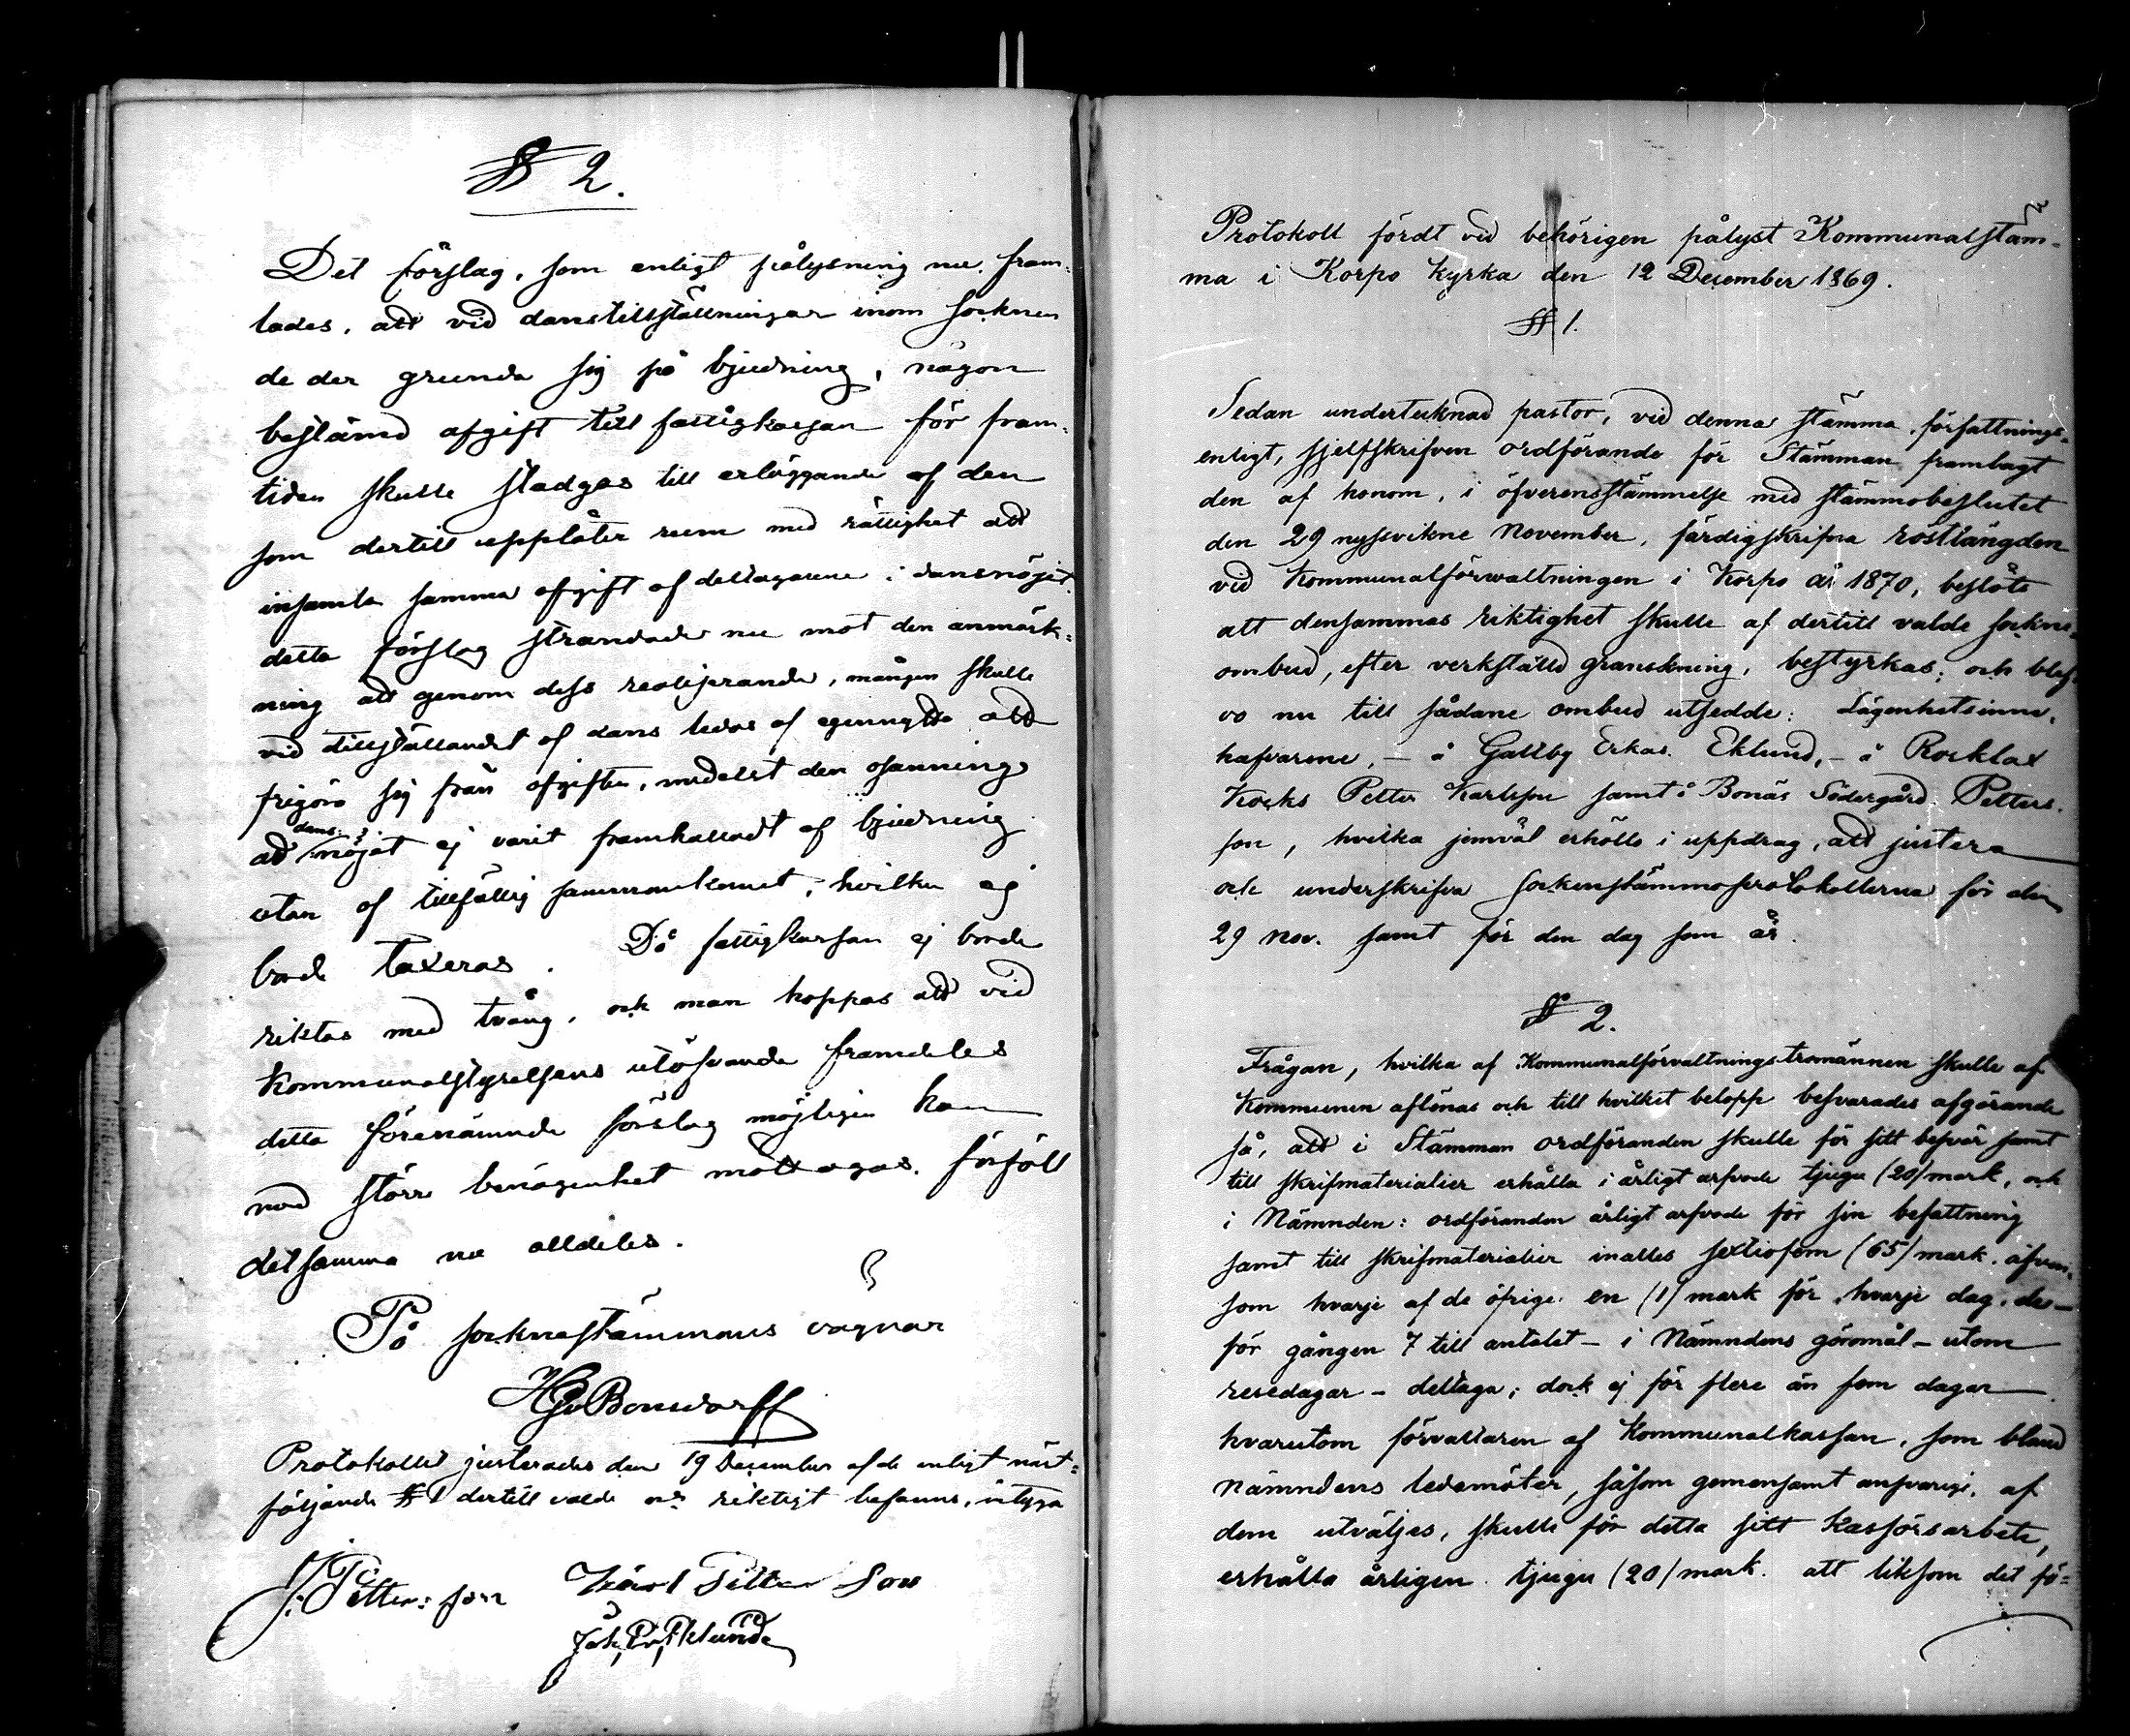 § 2.
Det förslag, som enligt pålysning nu fram-
lades, att vid danstillställningar inom socknen
de der grunda sig på bjudning, någon
bestämd afgift till fattigkassan för fram-
tiden skulle stadgas till erläggande af den
som dertill upplåter rum med rättighet att
insamla samma afgift af deltagarene i dansnöjet.
detta förslag strandade nu mot den anmärk-
ning att genom dess realiserande, mången skulle
vid tillställandet af dans ledas af egennytta att
frigöra sig från afgiften, medelst den osanning
att dans-nöjet ej varit framkalladt af bjudning
utan af tillfällig sammankomst, hvilken ej
borde taxeras. Då fattigkassan ej borde
riktas med tvång, och man hoppas att vid
Kommunalstyrelsens utöfvande framdeles
detta förenämnde förslag möjligen kan
med större benägenhet mottagas, förföll
detsamma nu alldeles.
På socknestämmans vägnar
HGvBonsdorff
Protokollet justerades den 19 December af de enligt näst-
följande § 1 dertill valde och riktigt befanns, intyga
J. Petters son Karl Petter Son
Joh. Er. Eklund
Protokoll fördt vid behörigen pålyst Kommunalstäm-
ma i Korpo kyrka den 12 December 1869.
§ 1.
Sedan undertecknad pastor, vid denna stämma, författnings-
enligt, sjelfskrifven ordförande för Stämman frambragt
den af honom, i öfverensstämmelse med stämmobeslutet
den 29 nyssvikne November, färdigskrifna röstlängden
vid Kommunalförwaltningen i Korpo år 1870, beslöts
att densammas riktighet skulle af dertill valde sockne-
ombud, efter verkställd granskning, bestyrkas; och blef-
vo nu till sådane ombud utsedde: Lägenhetsinne-
hafvarene, – å Gallby Erkas Eklund, – å Rocklax
Kocks Petter Karlsson samt å Bonäs Södergård Petters-
son, hvilka jemväl erhöllo i uppdrag, att justera
och underskrifva sockenstämmoprotokollerna för den
29 Nov. samt för den dag som är.
§ 2.
Frågan, hvilka af Kommunalförvaltningstromännen skulle af
Kommunen aflönas och till hvilket belopp besvarades afgörande
så, att i Stämman ordföranden skulle för sitt besvär samt
till skrifmaterialier erhålla i årligt arfvode tjugu (20) mark, och
i Nämnden: ordföranden årligt arfvode för sin befattning
samt till skrifmaterialier inalles sextiofem (65) mark, äfven-
som hvarje af de öfrige en (1) mark för hvarje dag, de –
för gången 7 till antalet – i Nämndens göromål – utom
resedagar – deltaga; dock ej för flere än fem dagar
hvarutom förvaltaren af Kommunalkassan, som bland
Nämndens ledamöter, såsom gemensamt ansvarige, af
dem utväljes, skulle för detta sitt kassörsarbete,
erhålla årligen tjugu (20) mark. att liksom det fö-